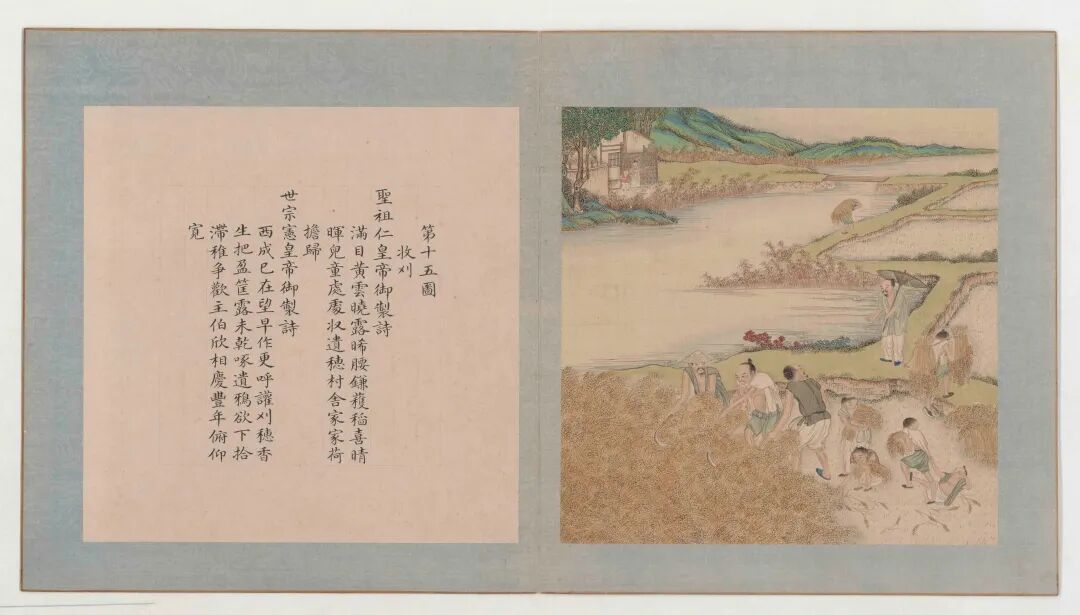 第十五圖
收刈
聖祖仁皇帝御製詩
滿目黃雲曉露晞腰鎌穫稻喜晴
暉兒童處處収遺穗村舍家家荷
擔歸
世宗憲皇帝御製詩
西成已在望早作更呼讙刈穗香
生把盈筐露未乾啄遺鴉欲下拾
滯稚爭歡主伯欣相慶豐年俯仰
寬